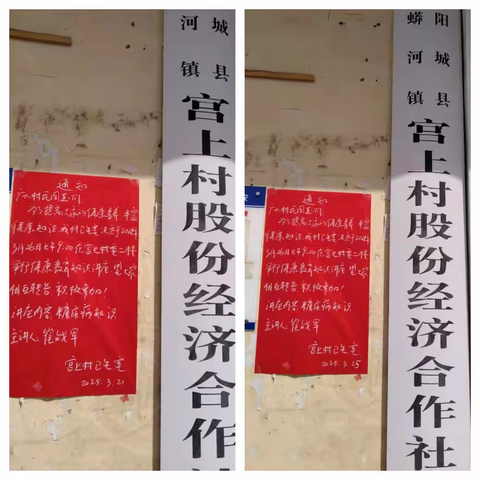 城县
河镇
宫上村股份经济合作社
通知
广大村民同志们
为提高大家的健康素养 丰富
健康知识,我村卫生室决定于
3月26日上午9:00在宫上村委二楼
举行健康教育知识讲座 望大家
相互转告 积极参加!
讲座内容 糖尿病知识
主讲人: 崔战军
宫上村卫生室
阳城县
蟒河镇
宫上村股份经济合作社
通知
广大村民同志们
为提高大家的健康素养 丰富
健康知识,我村卫生室决定于
3月26日上午9:00在宫上村委二楼
举行健康教育知识讲座 望大家
相互转告 积极参加!
讲座内容 糖尿病知识
主讲人: 崔战军
宫上村卫生室